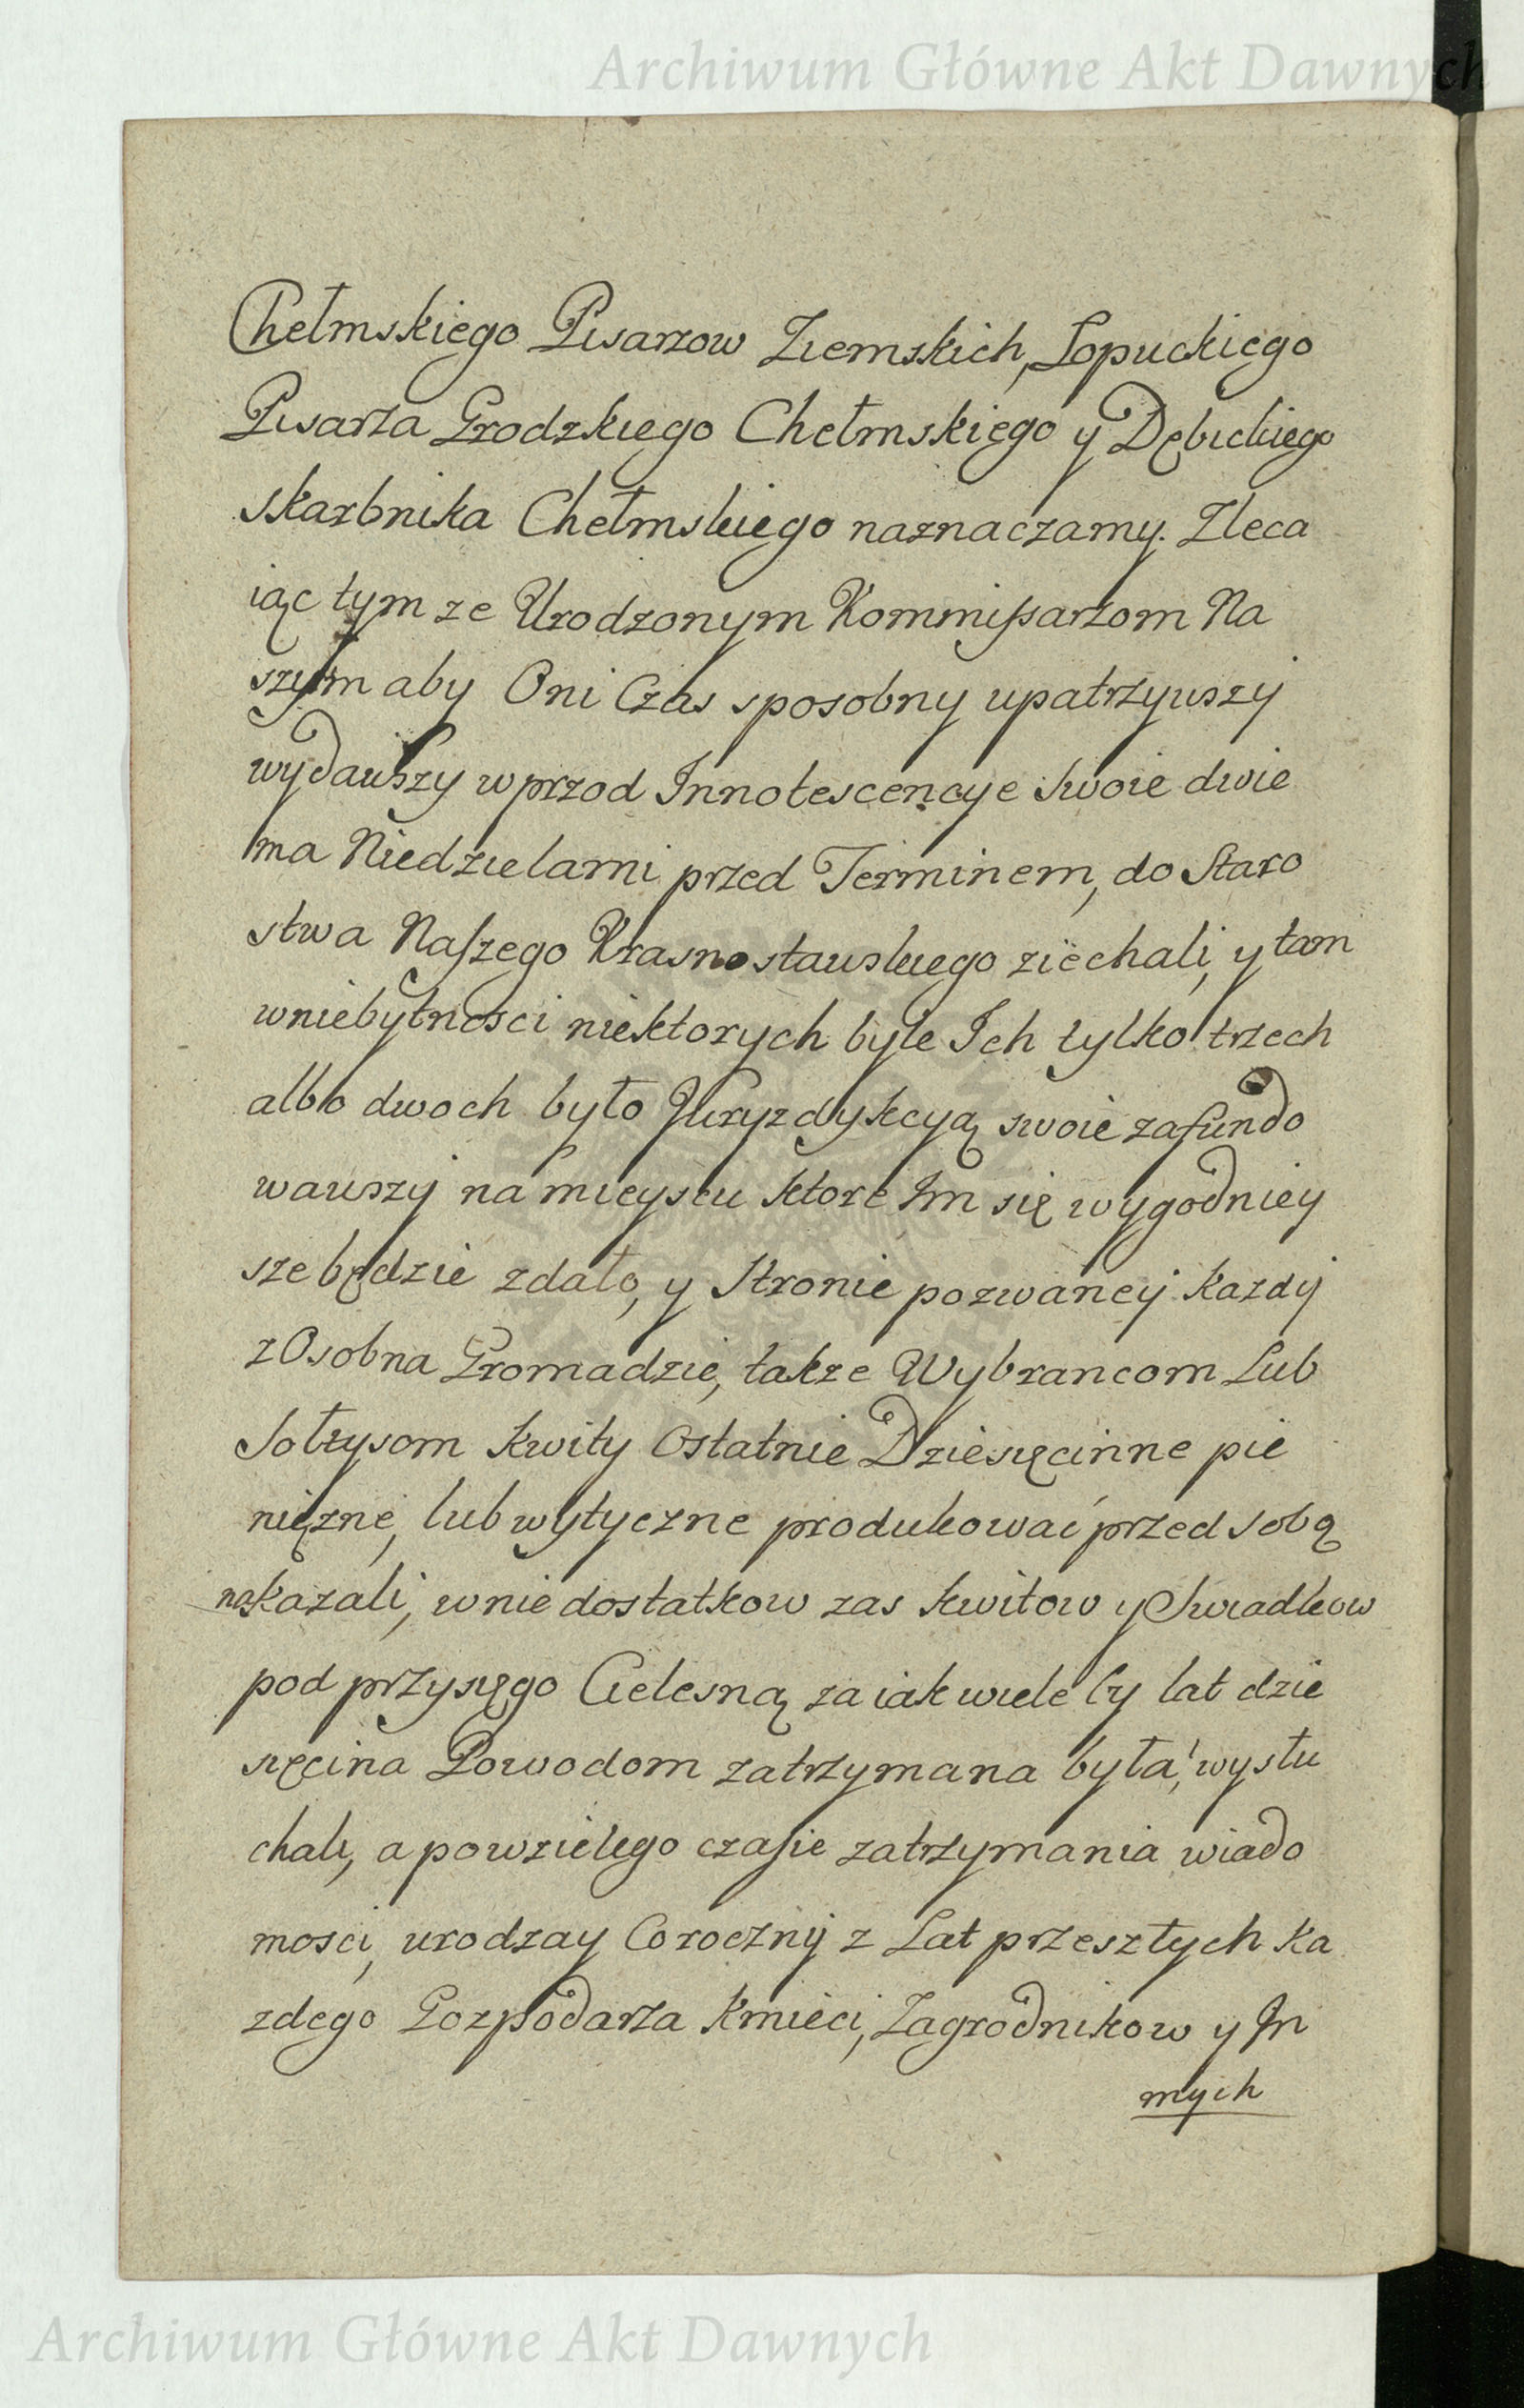 Archiwum Główne Akt Dawnych
Chełmskiego Pisarzow Ziemskich, Łopuckiego
Pisarza Grodzkiego Chełmskiego y Dębickiego
skarbnika Chełmskiego naznaczamy. Zleca
iąc tym ze Urodzonym Kommissarzom Na
szym aby Oni Czas sposobny upatrzywszy
wydawszy wprzod Innotescencye swoie dwie
ma Niedzielami przed Terminem, do Staro
stwa Naszego Krasnostawskiego ziechali, y tam
wniebytnosci niektorych byle Ich tylko trzech
albo dwoch było Juryzdykcyą swoie zafundo
wawszy na mieyscu ktore Im się wygodniey
sze będzie zdało, y Stronie pozwaney kazdy
z Osobna Gromadzie, takze Wybrancom Lub
Sołtysom kwity Ostatnie Dziesięcinne pie
nięzne, lub wytyczne produkować przed sobą
nakazali, w nie dostatkow zas kwitow y Swiadkow
pod przysięgo Cielesną za iak wiele by lat dzie
sięcina Powodom zatrzymana była, wysłu
chali, a powzielego czasie zatrzymania wiado
mosci, urodzay Coroczny z Lat przeszłych ka
zdego Gozpodarza Kmieci, Zagrodnikow y In
mych
Archiwum Główne Akt Dawnych